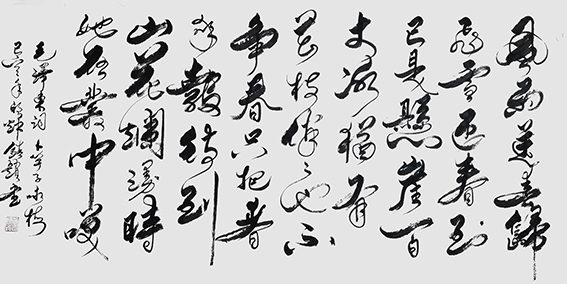 風雨送春歸
飛雪迎春到
已是懸崖百
丈冰猶有
花枝俏俏也不
爭春只把春
來報待到
山花爛漫時
她在叢中笑
毛澤東詞卜算子咏梅